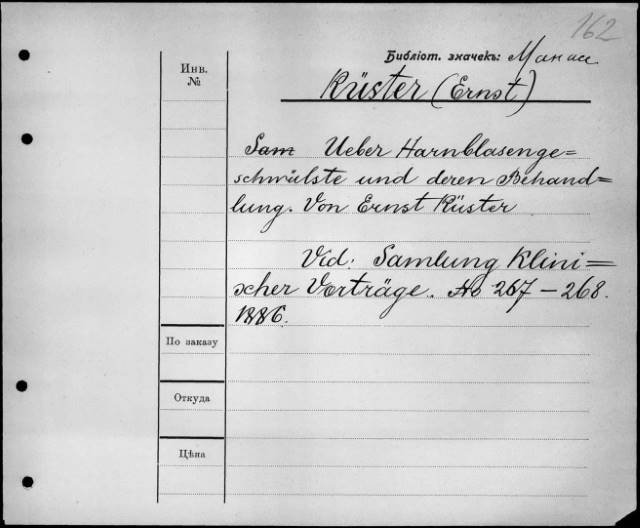 162
Библіот. значекъ: Манас
Инв.
№
Küster (Ernst)
Sam Ueber Harnblasenge=
schwülste und deren Behand=
lung. Von Ernst Küster
Vid: Samlung Klini=
scher Vorträge. No 267-268.
1886.
По заказу
Откуда
Цѣна